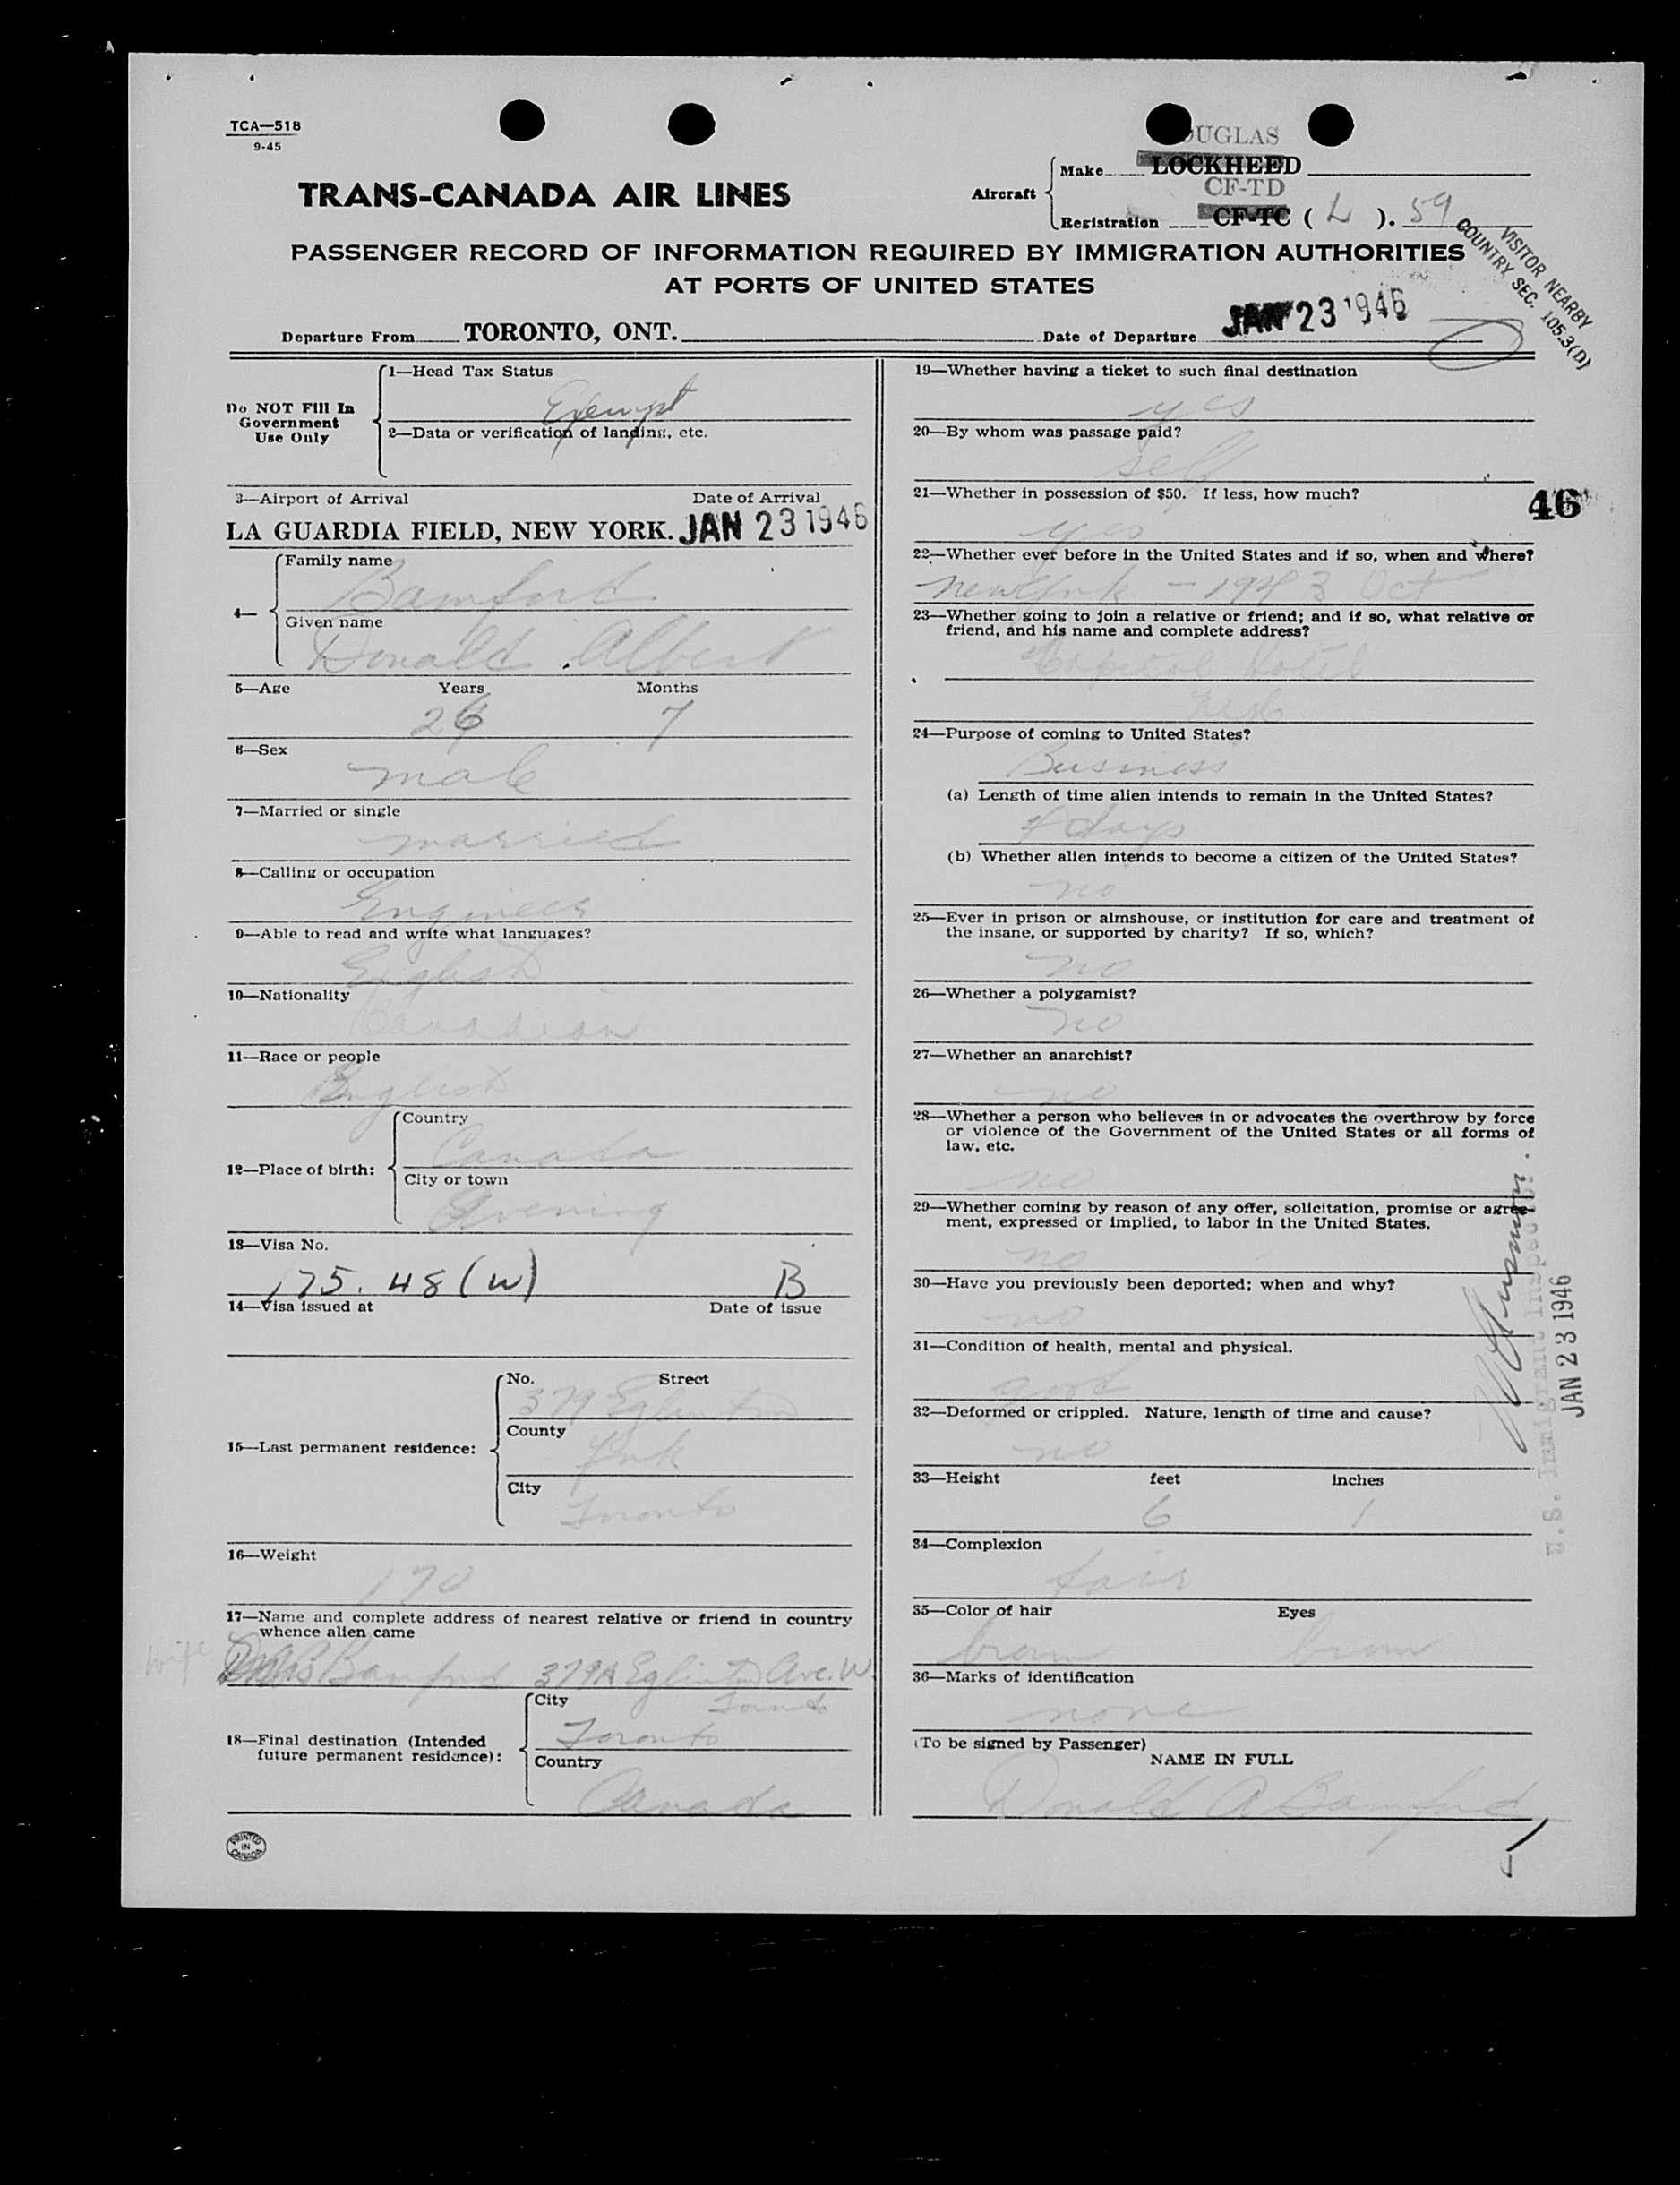 TCA—518
9-45
UGLAS
Aircraft
Make LOCKHEED
CF-TD
Registration CF-TC ( L ). 59
TRANS-CANADA AIR LINES
VISITOR NEARBY
COUNTRY, SEC. 105.3(D)
PASSENGER RECORD OF INFORMATION REQUIRED BY IMMIGRATION AUTHORITIES
AT PORTS OF UNITED STATES
Departure From TORONTO, ONT. Date of Departure JAN 23 1946
Do NOT Fill In
Government
Use Only
1—Head Tax Status
Exempt
2—Data or verification of landing, etc.
3—Airport of Arrival Date of Arrival
LA GUARDIA FIELD, NEW YORK. JAN 23 1946
4—
Family name
Bamford
Given name
Donald Albert
5—Age Years Months
26 7
6—Sex
male
7—Married or single
married
8—Calling or occupation
Engineer
9—Able to read and write what languages?
English
10—Nationality
Canadian
11—Race or people
English
12—Place of birth:
Country
Canada
City or town
Avening
13—Visa No.
175. 48 (W) B
14—Visa issued at Date of issue
15—Last permanent residence:
No. Street
379 Eglinton
County
York
City
Toronto
16—Weight
170
17—Name and complete address of nearest relative or friend in country
whence alien came
wife Bamford 379A Eglinton Ave. W
Toronto
18—Final destination (Intended
future permanent residence):
City
Toronto
Country
Canada
PRINTED
IN
CANADA
19—Whether having a ticket to such final destination
yes
20—By whom was passage paid?
self
21—Whether in possession of $50. If less, how much?
46
yes
22—Whether ever before in the United States and if so, when and where?
New York - 1943 Oct
23—Whether going to join a relative or friend; and if so, what relative or
friend, and his name and complete address?
Capitol Hotel
24—Purpose of coming to United States?
Business
(a) Length of time alien intends to remain in the United States?
4 days
(b) Whether alien intends to become a citizen of the United States?
no
25—Ever in prison or almshouse, or institution for care and treatment of
the insane, or supported by charity? If so, which?
no
26—Whether a polygamist?
no
27—Whether an anarchist?
no
28—Whether a person who believes in or advocates the overthrow by force
or violence of the Government of the United States or all forms of
law, etc.
no
29—Whether coming by reason of any offer, solicitation, promise or agree-
ment, expressed or implied, to labor in the United States.
no
30—Have you previously been deported; when and why?
no
31—Condition of health, mental and physical.
good
32—Deformed or crippled. Nature, length of time and cause?
no
33—Height feet inches
6 1
34—Complexion
fair
35—Color of hair Eyes
brown brown
36—Marks of identification
none
(To be signed by Passenger)
NAME IN FULL
Donald A Bamford
U.S. Immigrant Inspector.
JAN 23 1946